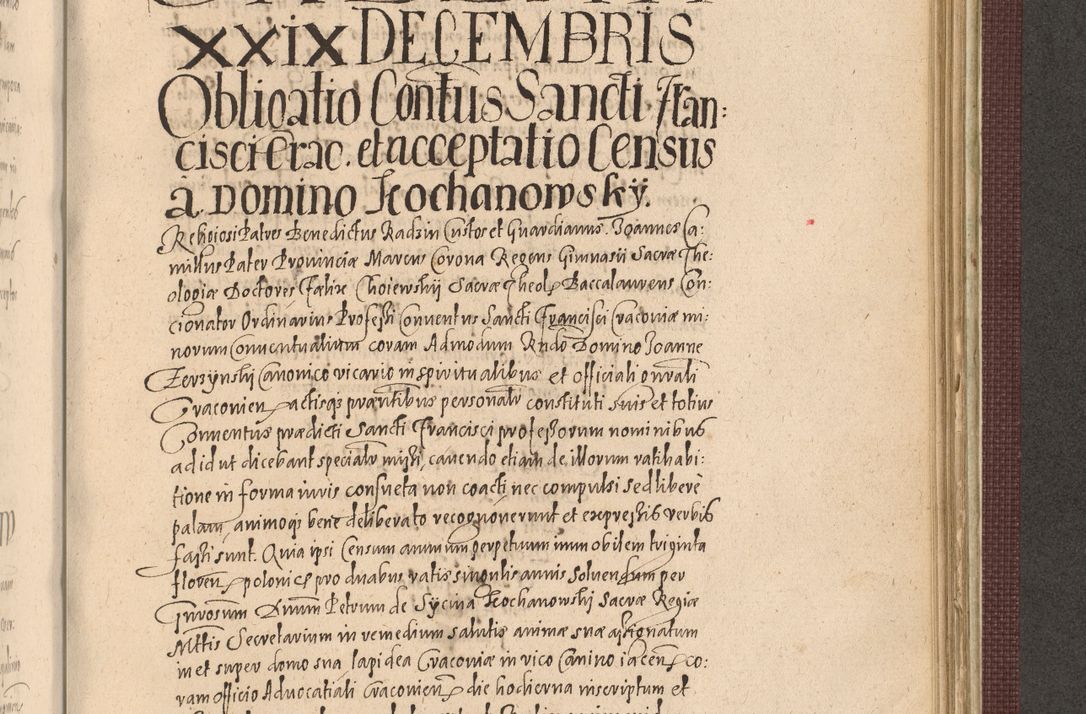 XXIX DECEMBRIS
Obligatio Contus Sancti Fran:
cisci Crac. et acceptatio Census
à Domino Kochanowsky.
Religiosi Patres Benedictus Radzin Custos et Guardianus. Joannes Ca:
millus Pater Provinciæ Marcus Corona Regens Gimnasii Sacræ The:
ologiæ Doctores Fælix Choiewskij Sacræ Theol Baccalaureus Con:
cionator Ordinarius Professi Conventus Sancti Francisci Cracoviæ mi:
norum Conventualium coram Admodum Rndo Domino Joanne
Zerzynskij Canonico vicario in spiritualibus et officiali gnrali
Cracovien actisq præntibus personalr constituti suis et totius
Conventus prædicti Sancti Francisci professorum nominibus
ad id ut dicebant specialr missi, cavendo etiam de illorum ratihabi:
tione in forma iuris consueta non coacti nec compulsi sed libere
palam animoq bene deliberato recognoverunt et expressis verbis
fassi sunt. Quia ipsi Censum annuum perpetuum immobilem triginta
floren polonic pro duabus ratis singulis annis solvendum per
Gnrosum Dnum Petrum de Sycina Kochanowskij Sacræ Regiæ
Mttis Secretarium in remedium salutis animæ suæ assignatum
in et super domo sua lapidea Cracoviæ in vico Canino iacen co:
ram officio Advocatiali Cracovien die hodierna inscriptum et